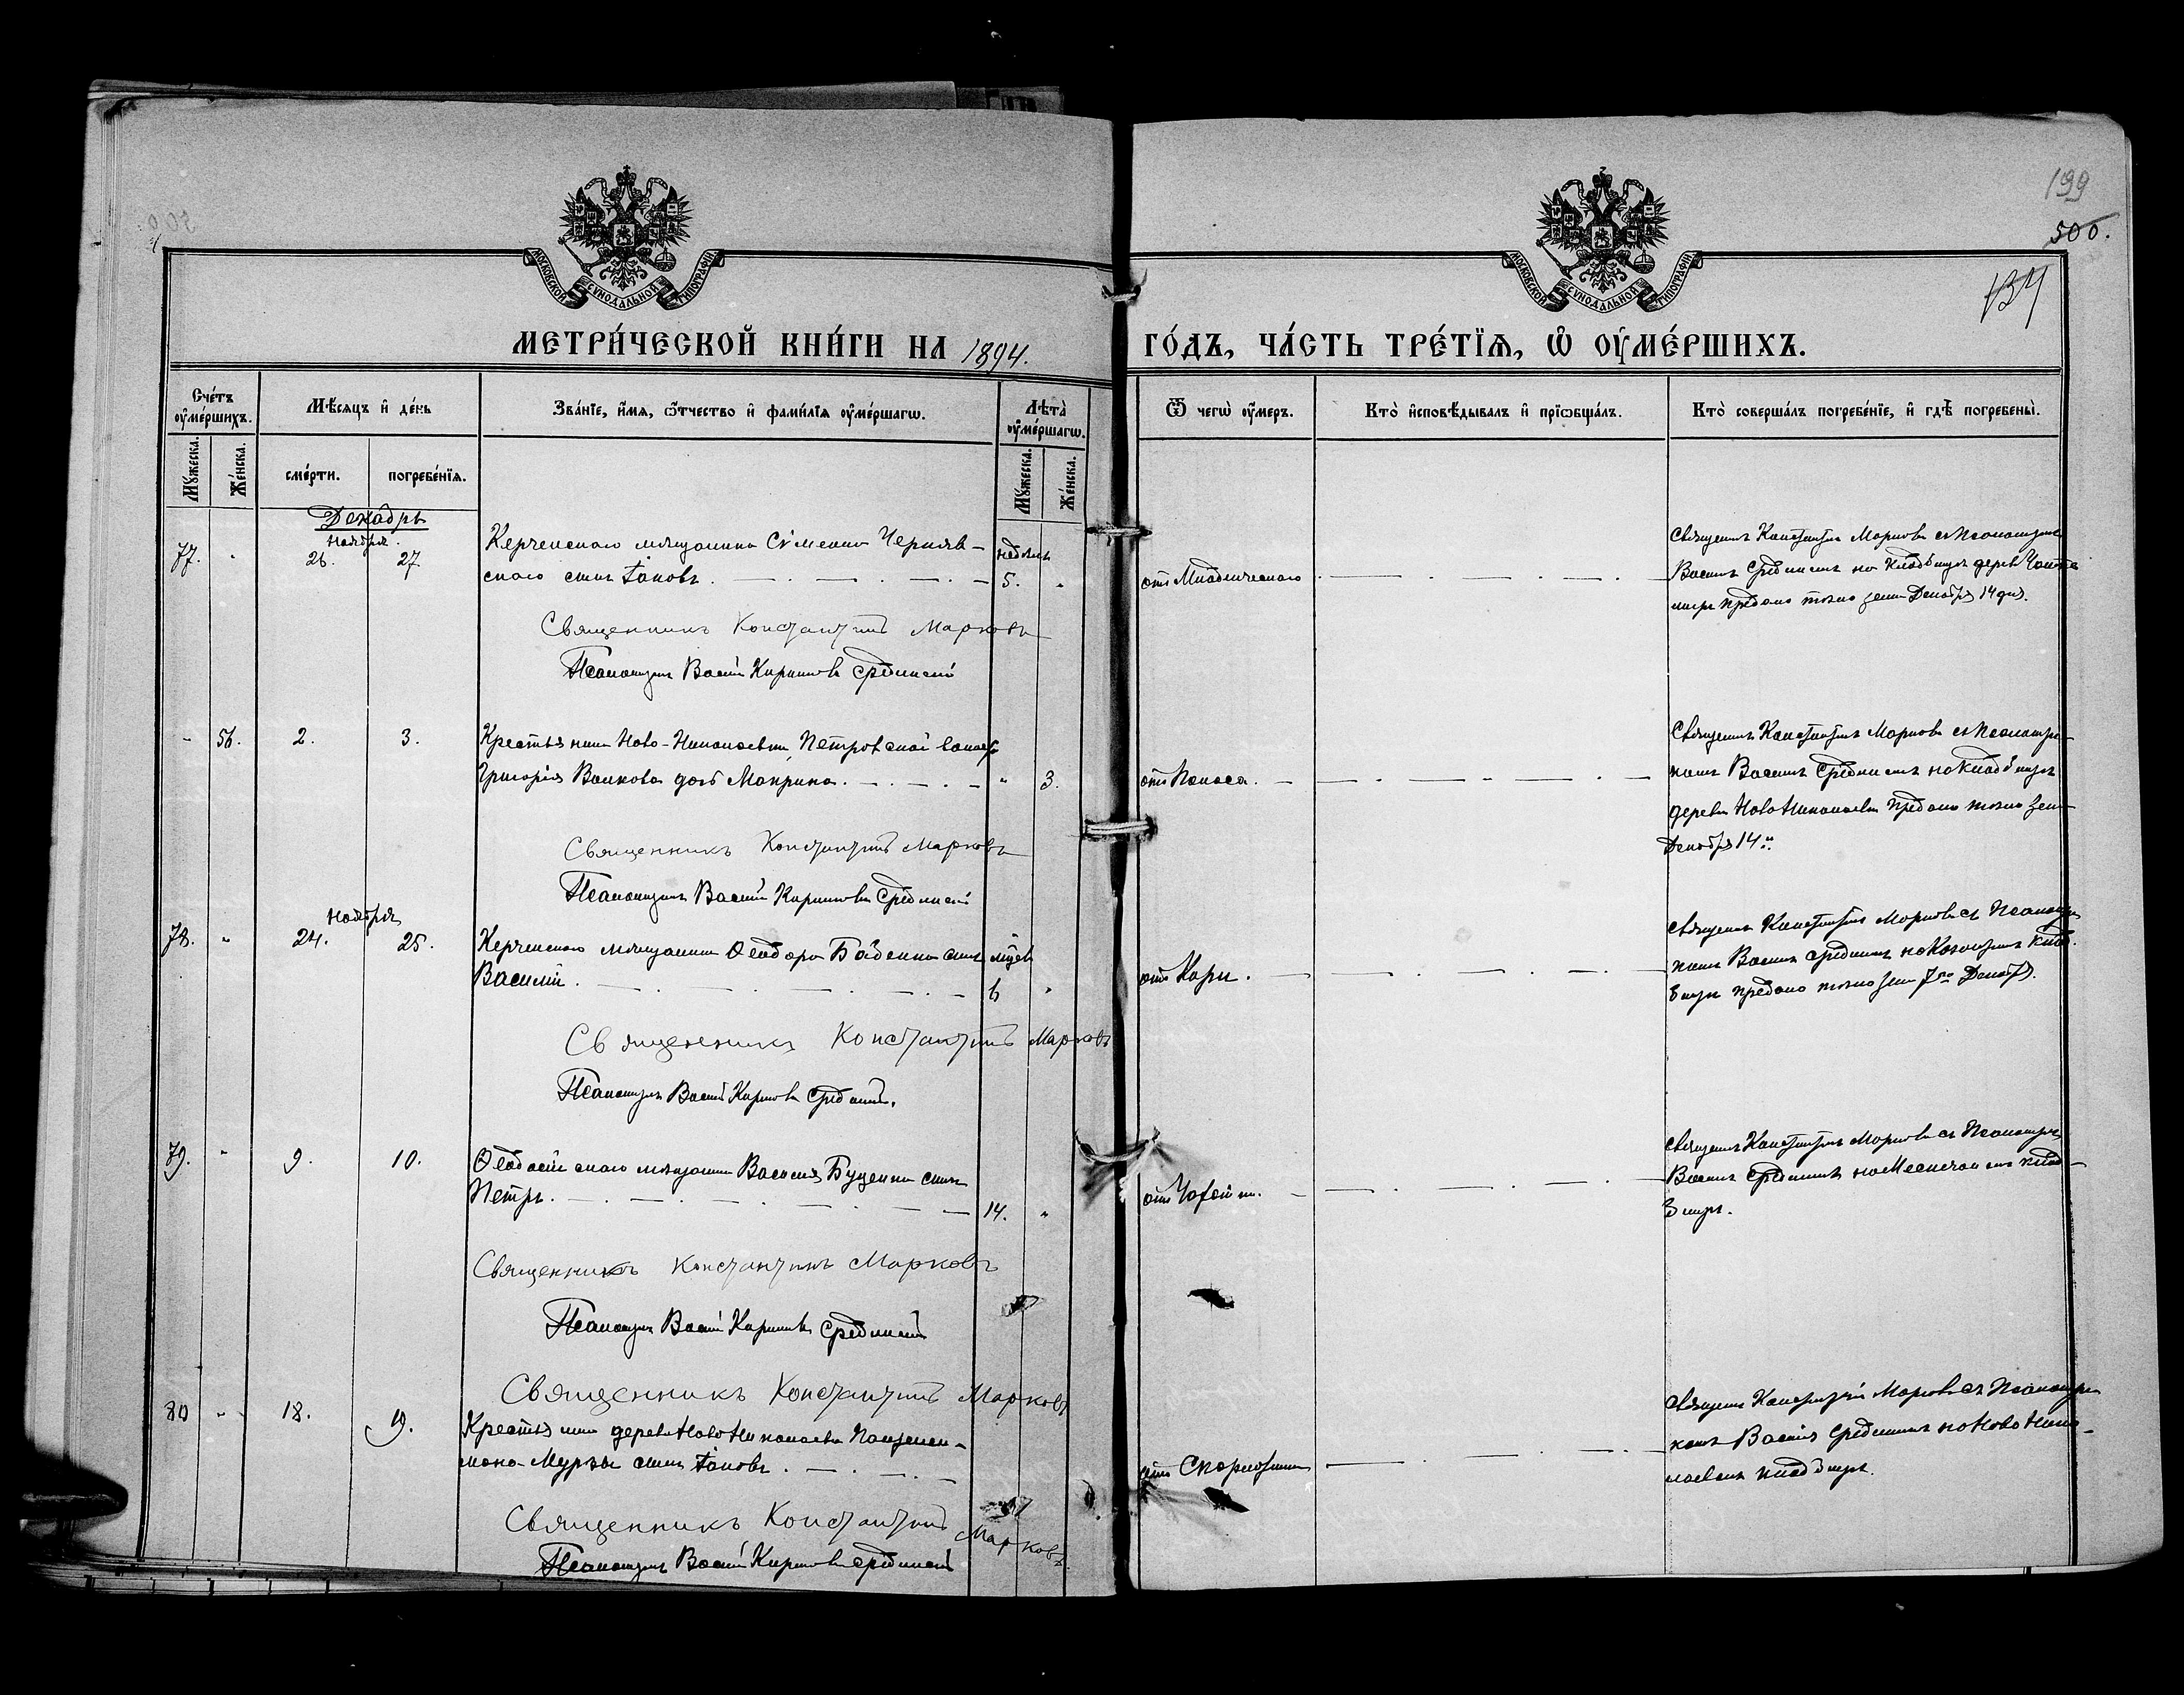 199
500.
МОСКОВСКОЙ СѴНОДАЛЬНОЙ ТИПОГРАФІИ
МОСКОВСКОЙ СѴНОДАЛЬНОЙ ТИПОГРАФІИ
МЕТРИ́ЧЕСКОЙ КНИ́ГИ НА 1894.
ГО́ДЪ, ЧА́СТЬ ТРЕ́ТЇѦ, Ѡ ОУМЕ́РШИХЪ.
Сче́тъ оуме́ршихъ.
Мѣ́сяцъ и де́нь
Зва́нїе, и́мя, ѻ́тчество и фами́лїя оуме́ршагѡ.
Лѣта̀ оуме́ршагѡ.
Ѿ чегѡ̀ оу́меръ.
Кто̀ и҆сповѣ́дывалъ и҆ прїѡбща́лъ.
Кто̀ соверша́лъ погребе́нїе, и҆ гдѣ̀ погребены̀.
Мꙋ́жеска.
Же́нска.
сме́рти.
погребе́нїя.
Мꙋ́жеска.
Же́нска.
Декабрь
Ноября.
77. " 26. 27. Керченскаго мѣщанина Сѵмеона Черняв-
недѣль
скаго сынъ Іаковъ. 5. " отъ Младенческаго
Священникъ Константинъ Марковъ съ Псаломщикомъ
Василіемъ Срединскимъ на кладбищѣ дерев
предано тѣло земли Декабря 14 дня.
Священникъ Константинъ Марковъ
Псаломщикъ Василій Кириловъ Срединскій
" 56. 2. 3. Крестьянина Ново-Николаевки Петровской волости
Григорія Волкова дочь Макрина. " 3.
отъ Поноса.
Священникъ Константинъ Марковъ съ Псаломщи-
комъ Василіемъ Срединскимъ на кладбищѣ
деревни Ново Николаевки предано тѣло земли
Декабря 14
Священникъ Константинъ Марковъ
Псаломщикъ Василій Кириловъ Срединскій
Ноября
78. " 24. 25. Керченскаго мѣщанина Ѳеодора сынъ
Василій. 6 "
отъ Кори.
Священникъ Константинъ Марковъ съ Псаломщи
комъ Василіемъ Срединскимъ на клад-
бищѣ предано тѣло земли 7го Декабря.
Священникъ Константинъ Марковъ
Псаломщикъ Василій Кириловъ Срединскій.
79. " 9. 10. Ѳеодосійскаго мѣщанина Василія Буценка сынъ
Петръ. 14. "
отъ Чахотки.
Священникъ Константинъ Марковъ съ Псаломщикомъ
Василіемъ Срединскимъ на клад-
бищѣ.
Священникъ Константинъ Марковъ
Псаломщикъ Василій Кириловъ Срединскій
Священникъ Константинъ Марковъ
80 " 18. 19. Крестьянина деревни Ново Николаевки Пантелеи-
мона Мурзы сынъ Іаковъ.
отъ Скарлатины
Священникъ Константинъ Марковъ съ Псаломщи
комъ Василіемъ Срединскимъ на Ново Нико-
лаевскомъ кладбищѣ.
Священникъ Константинъ Марковъ
Псаломщикъ Василій Кириловъ Срединскій